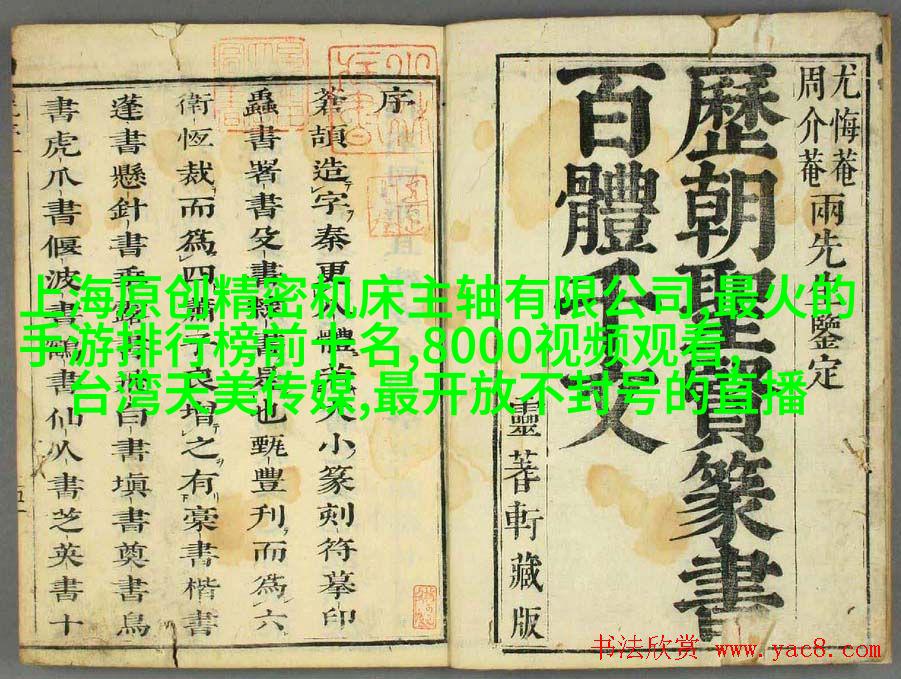 尤悔菴
周介菴
兩先生鑒定
歷朝聖賢篆書
百體千文
靈蓍軒藏版
序
蒼頡造字秦更體小篆刻符摹印
蟲書署書殳書書是也甄豐刊而爲六
衛恆裁而爲四子良增之有豪書楷書
蓬書懸針書垂書白書塡書奠書鳥
書虎爪書偃波書鶴書仙人書芝英書十
上海原创精密机床主轴有限公司,最火的
手游排行榜前十名,8000视频观看,
台湾天美传媒,最开放不封号的直播
书法欣赏 www.yac8.com